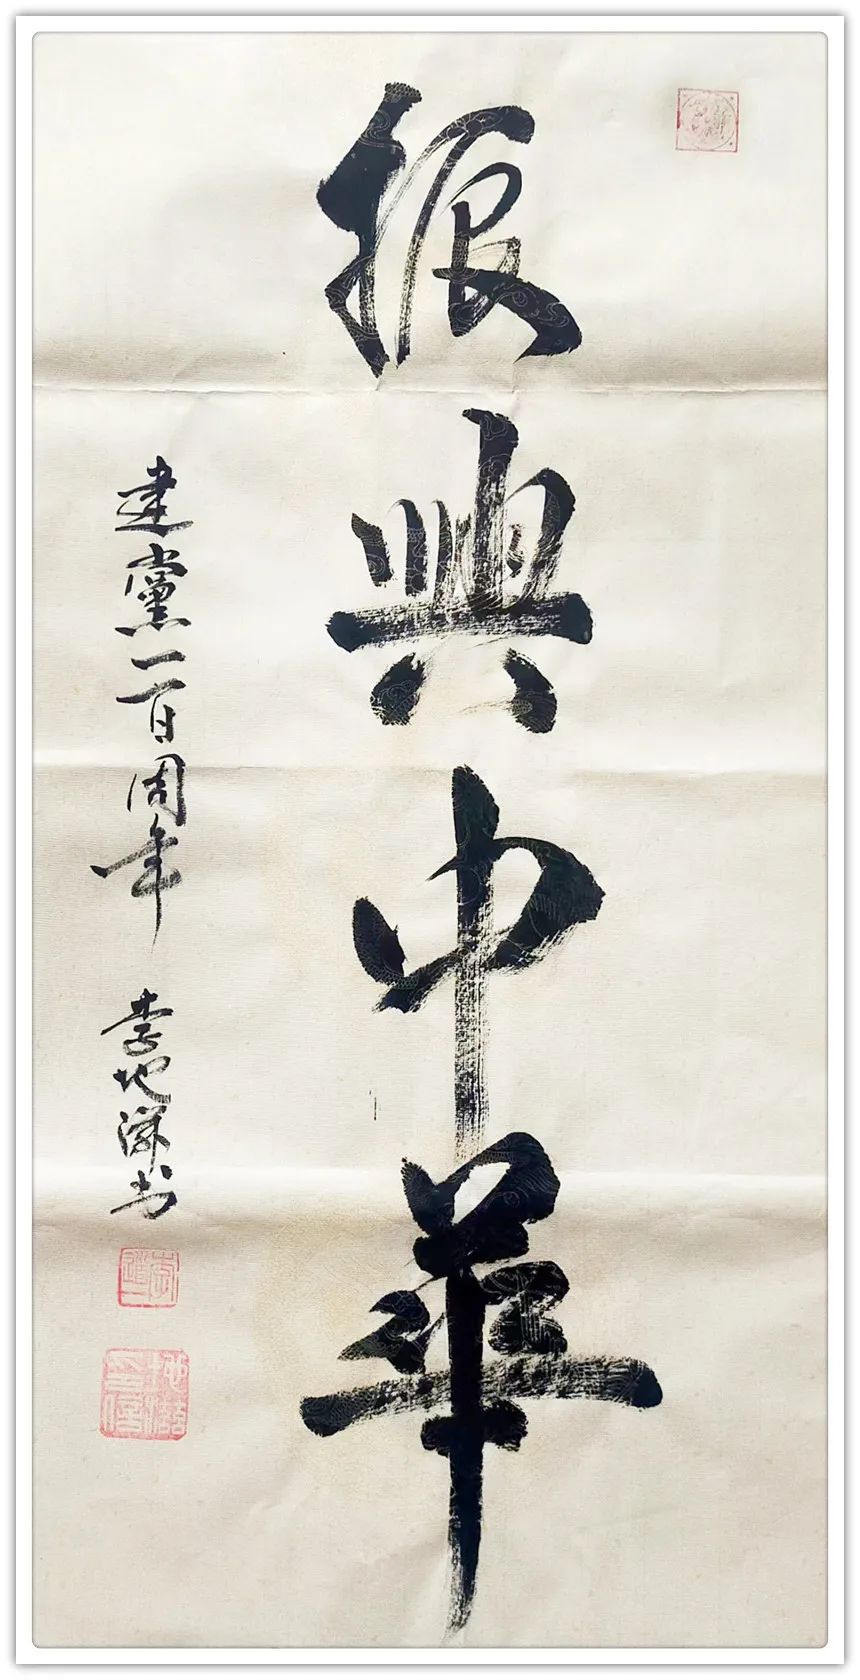 振興中華
建黨一百周年 李地深书